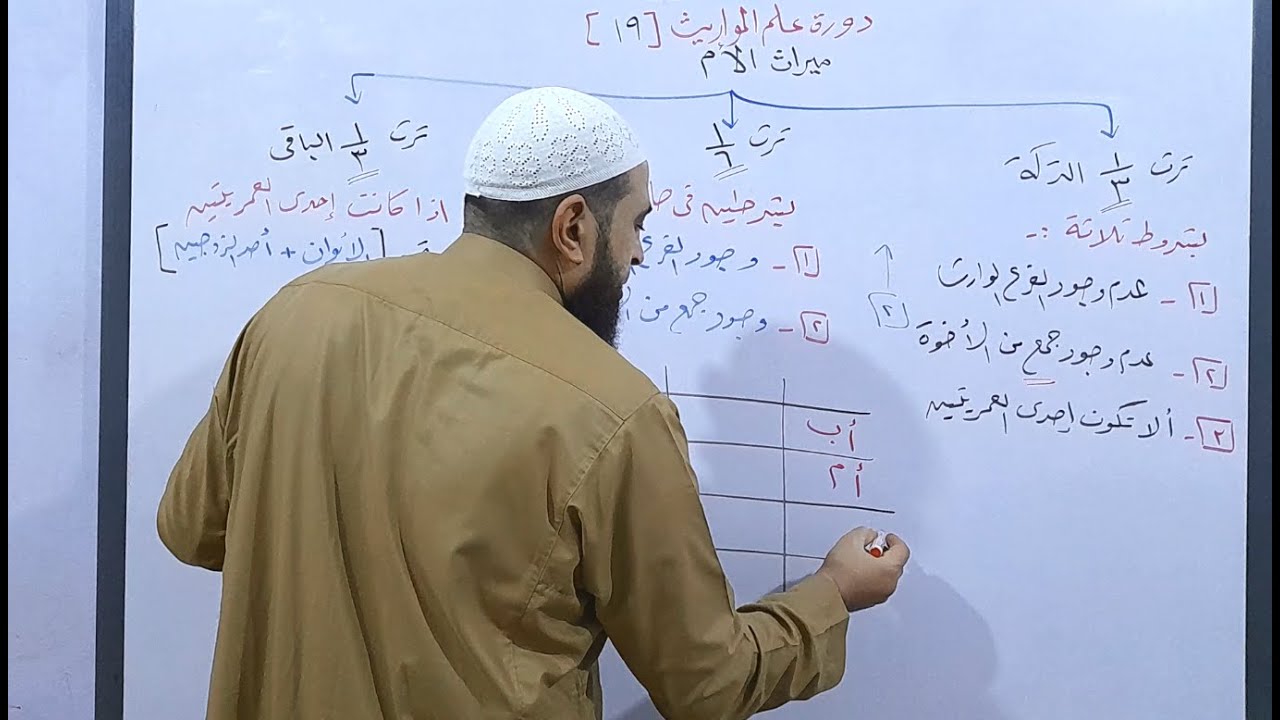 دورة علم المواريث [١٩]
ميراث الأم
ترث ١/٣ التركة
بشروط ثلاثة :-
١- عدم وجود الفرع الوارث
٢- عدم وجود جمع من الأخوة
٣- ألا تكون إحدى العمريتين
ترث ١/٦
بشرطين فى
١- وجود الفرع
٢- وجود جمع من
[٢]
ترث ١/٣ الباقى
اذا كانت إحدى العمريتين
[الأبوان + أحد الزوجين]
أب
أم